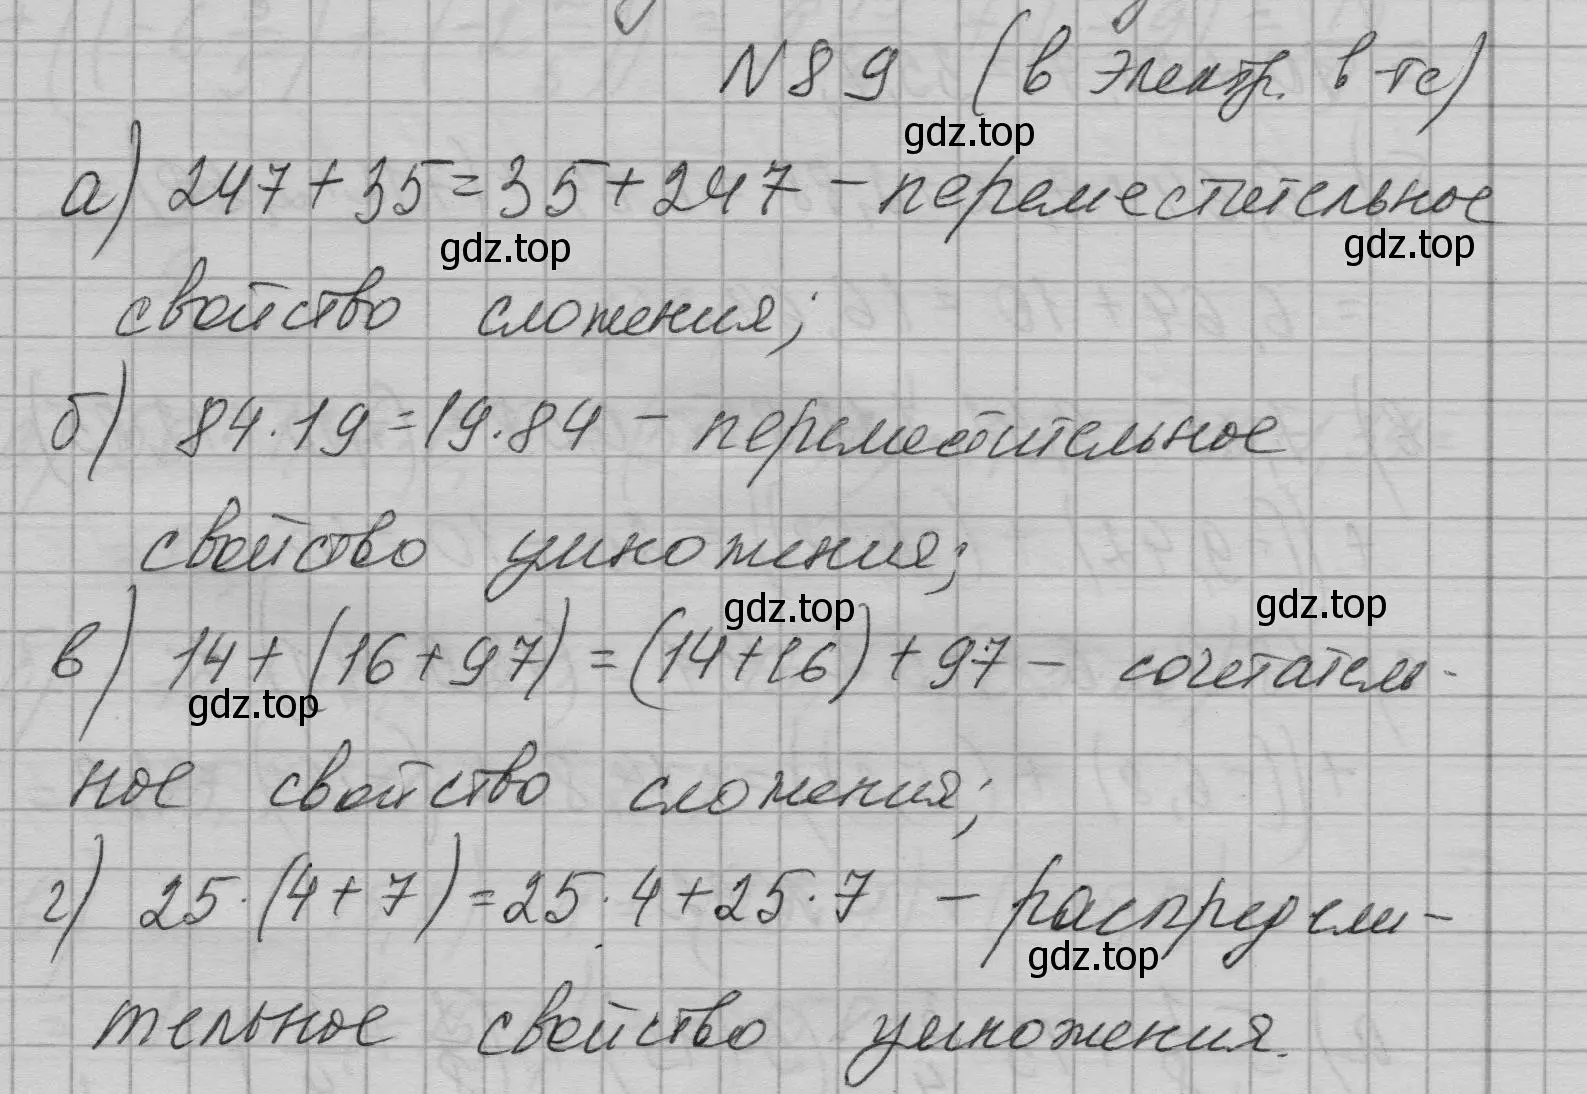 №89 (в электр. в-те)
gdz.top
а) 247+35=35+247 – переместительное
gdz.top gdz.top
свойство сложения;
б) 84·19=19·84 – переместительное
свойство умножения;
gdz.top gdz.top
в) 14+(16+97)=(14+16)+97 – сочетатель-
gdz.top
ное свойство сложения;
г) 25·(4+7)=25·4+25·7 – распредели-
gdz.top
тельное свойство умножения.